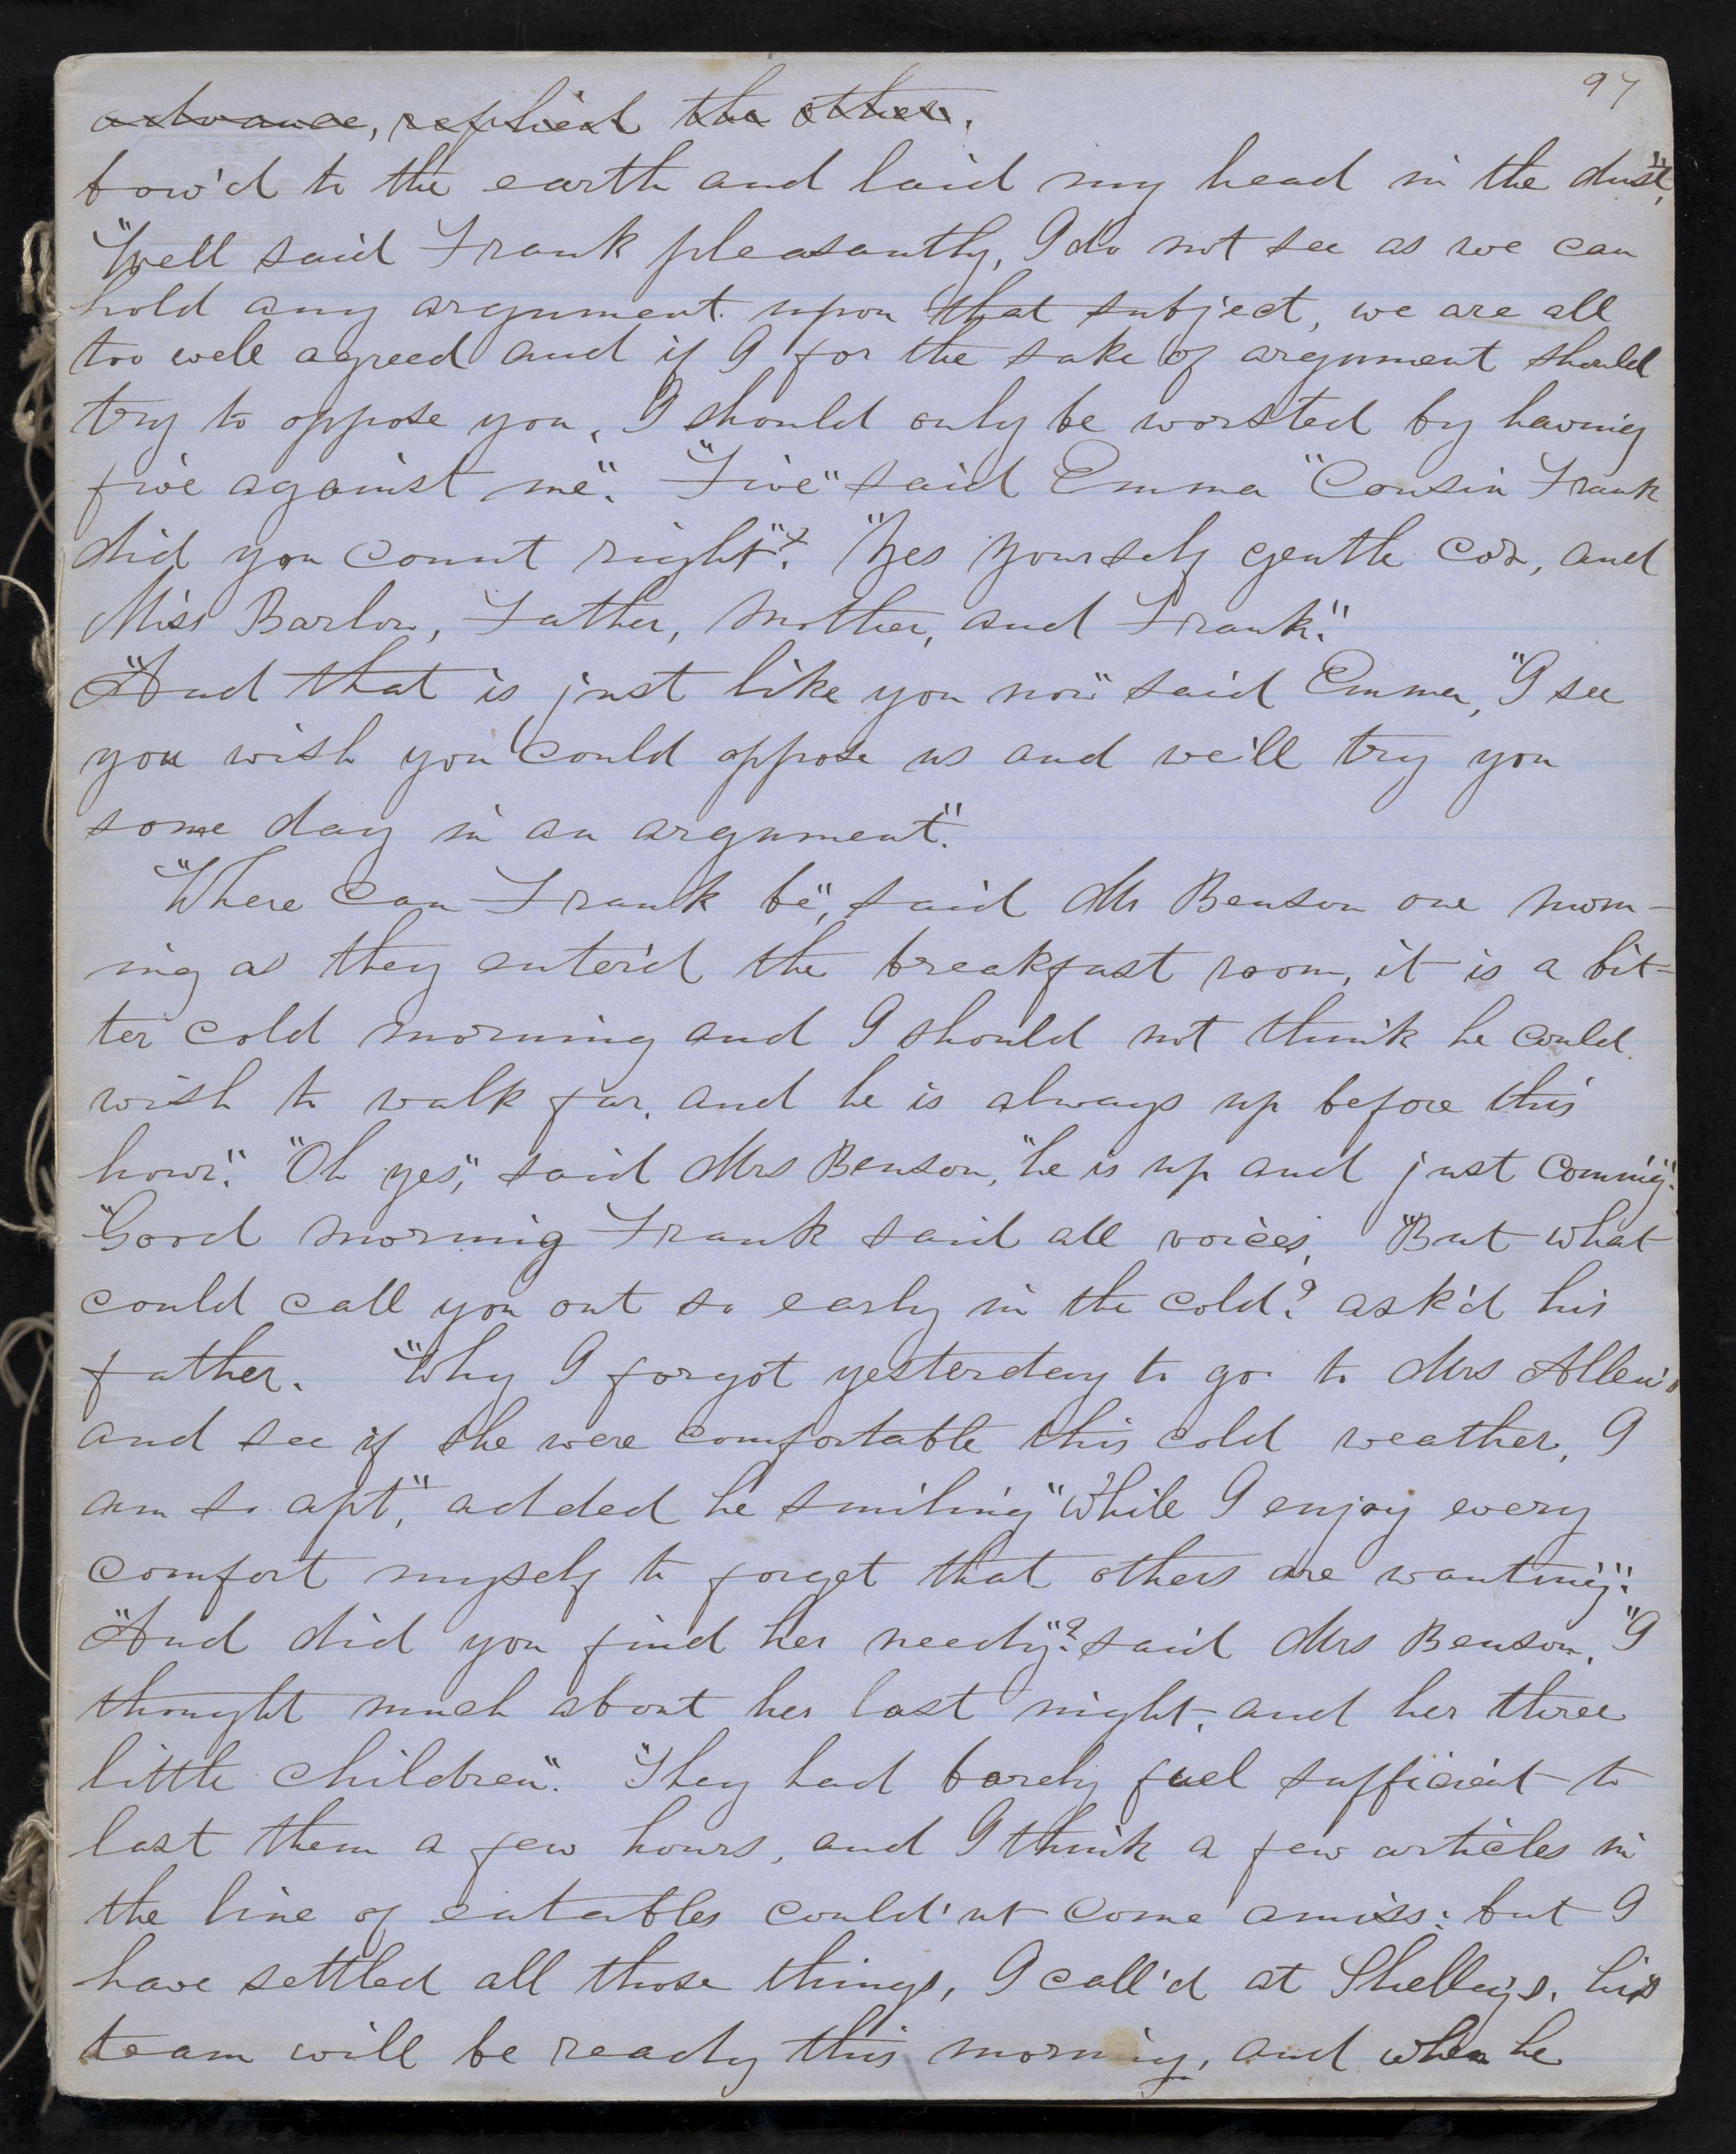 97
advance, replied the other.
bow'd to the earth and laid my head in the dust,"
"Well said Frank pleasantly, I do not see as we can
hold any argument upon that subject, we are all
too well agreed and if I for the sake of argument should
try to oppose you, I should only be worsted by having
five against me". "Five" said Emma "Cousin Frank
did you count right"? "Yes yourself gentle coz, and
Miss Barlow, Father, Mother, and Frank."
"And that is just like you now" said Emma, "I see
you wish you could oppose us and we'll try you
some day in an argument".
"Where can Frank be", said Mr Benson one morn-
ing as they enter'd the breakfast room, it is a bit-
ter cold morning and I should not think he could
wish to walk far, and he is always up before this
hour". "Oh yes", said Mrs Benson, "he is up and just coming".
"Good morning Frank said all voices, "But what
could call you out so early in the cold? ask'd his
father. "Why I forgot yesterday to go to Mrs Allen's
and see if she were comfortable this cold weather, I
am so apt", added he smiling "while I enjoy every
comfort myself to forget that others are wanting".
"And did you find her needy"? said Mrs Benson, "I
thought much about her last night, and her three
little children". "They had barely fuel sufficient to
last them a few hours, and I think a few articles in
the line of eatables could'nt come amiss: but I
have settled all those things, I call'd at Shelley's, his
team will be ready this morning, and when he